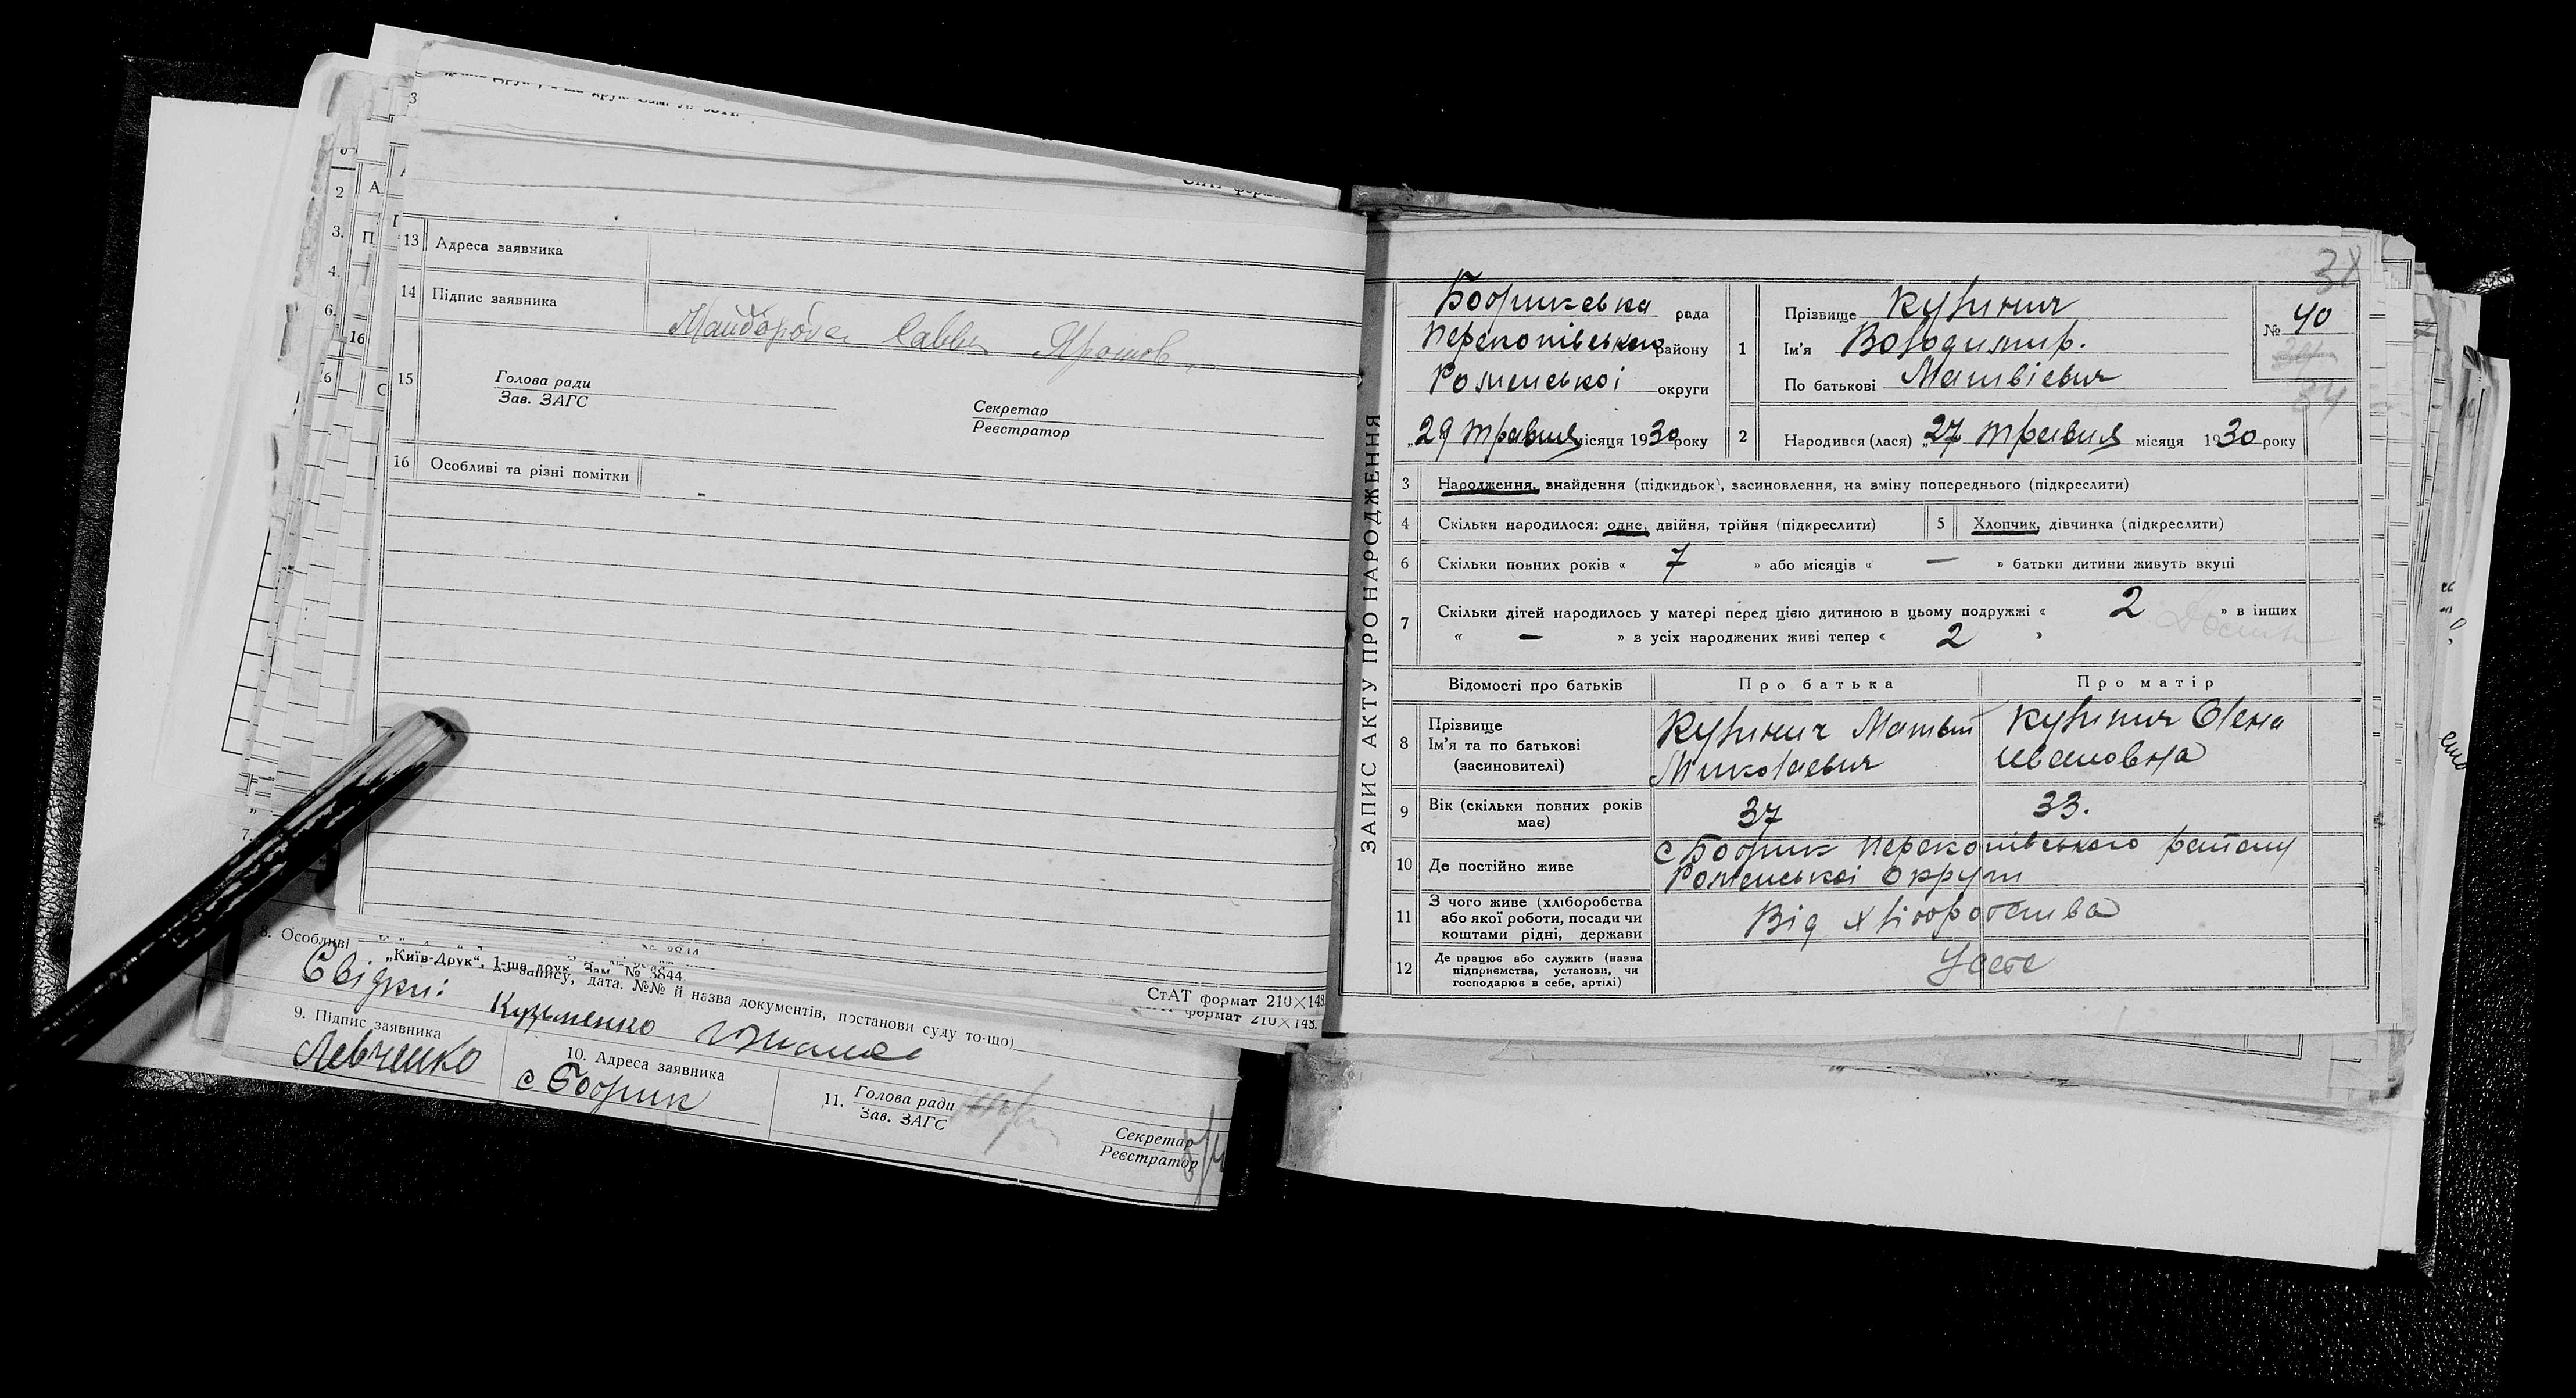 13 Адреса заявника
14 Підпис заявника
Майборода Савва
15 Голова ради
Зав. ЗАГС
Секретар
Реєстратор
16 Особливі та різні помітки
„Київ-Друк", 1-ша друк. Зам. № 3844
СтАТ формат 210×148
формат 210×148.
8. Особливі
до запису, дата. №№ й назва документів, постанови суду то-що)
Свідки: Кузьменко
9. Підпис заявника
Левченко
10. Адреса заявника
с Бобрик
11. Голова ради
Зав. ЗАГС
Секретар
Реєстратор
ЗАПИС АКТУ ПРО НАРОДЖЕННЯ
38
Бобриквська рада
Перекопівського району
Роменської округи
„29 травня місяця 1930 року
1 Прізвище Куринич
Ім'я Володимир.
По батькові Матвієвич
№ 40
34
2 Народився (лася) „27 травня місяця 1930 року
3 Народження, знайдення (підкидьок), засиновлення, на зміну попереднього (підкреслити)
4 Скільки народилося: одне, двійня, трійня (підкреслити)
5 Хлопчик, дівчинка (підкреслити)
6 Скільки повних років « 7 » або місяців « — » батьки дитини живуть вкупі
7 Скільки дітей народилось у матері перед цією дитиною в цьому подружжі « 2 » в інших
« — » з усіх народжених живі тепер « 2 »
Відомості про батьків
Про батька
Про матір
8 Прізвище
Ім'я та по батькові
(засиновителі)
Куринич Матвій
Миколаєвич
Куринич Олена
Івановна
9 Вік (скільки повних років
має)
37
33.
10 Де постійно живе
с Бобрик Перекопівського району
Роменської округи
11 З чого живе (хліборобства
або якої роботи, посади чи
коштами рідні, держави
Від хліборобства
12 Де працює або служить (назва
підприємства, установи, чи
господарює в себе, артілі)
У себе